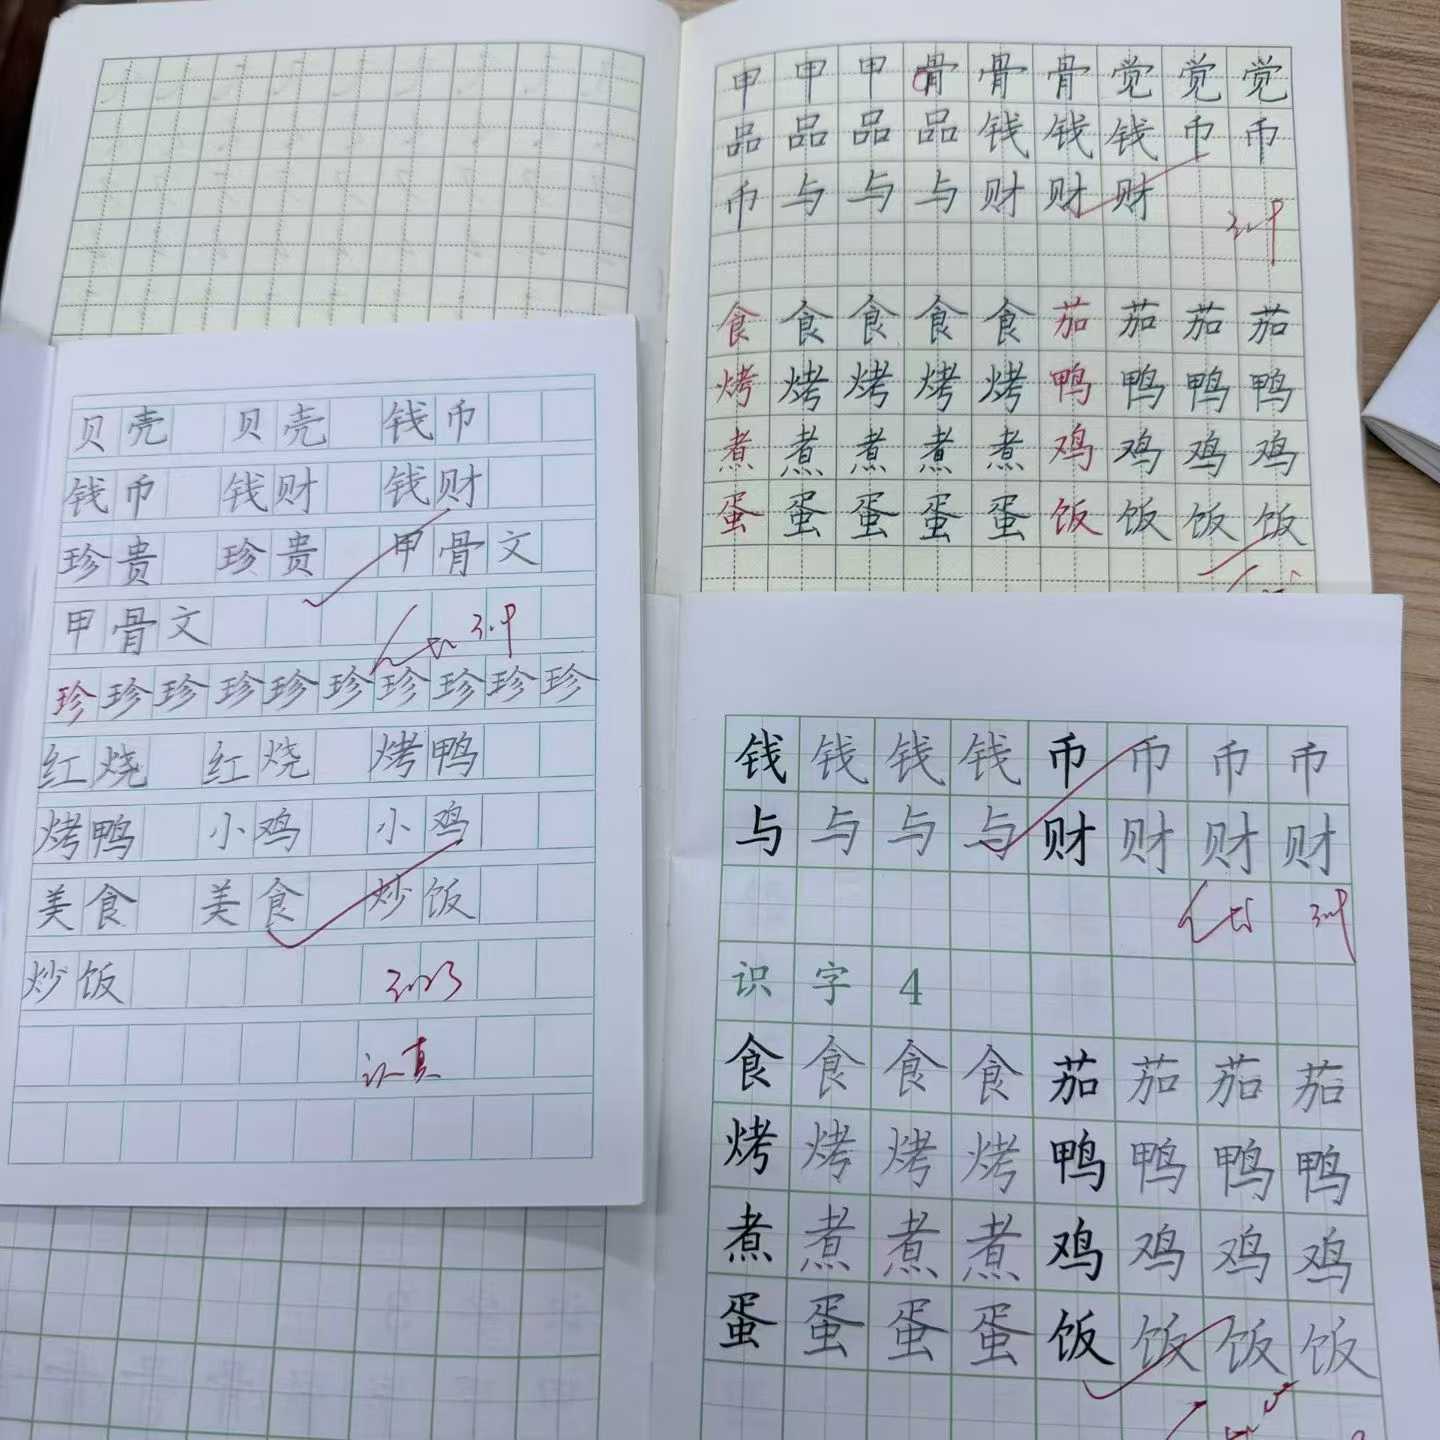 甲甲甲骨骨骨觉觉觉
品品品品钱钱钱币币
币与与与财财财
食食食食食茄茄茄茄
烤烤烤烤烤鸭鸭鸭鸭
煮煮煮煮煮鸡鸡鸡鸡
蛋蛋蛋蛋蛋饭饭饭饭
贝壳 贝壳 钱币
钱币 钱财 钱财
珍贵 珍贵 甲骨文
甲骨文
珍珍珍珍珍珍珍珍珍珍
红烧 红烧 烤鸭
烤鸭 小鸡 小鸡
美食 美食 炒饭
炒饭
认真
钱钱钱钱币币币币
与与与与财财财财
识字4
食食食食茄茄茄茄
烤烤烤烤鸭鸭鸭鸭
煮煮煮煮鸡鸡鸡鸡
蛋蛋蛋蛋饭饭饭饭